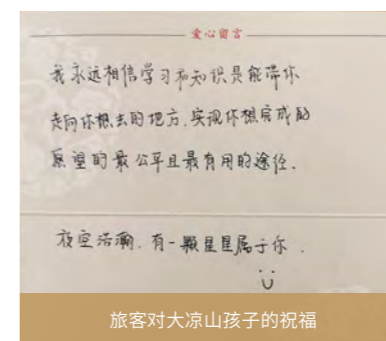 爱心留言
我永远相信学习和知识是能带你
走向你想去的地方,实现你想完成的
愿望的最公平且最有用的途径.
夜空浩瀚,有一颗星星属于你.
旅客对大凉山孩子的祝福